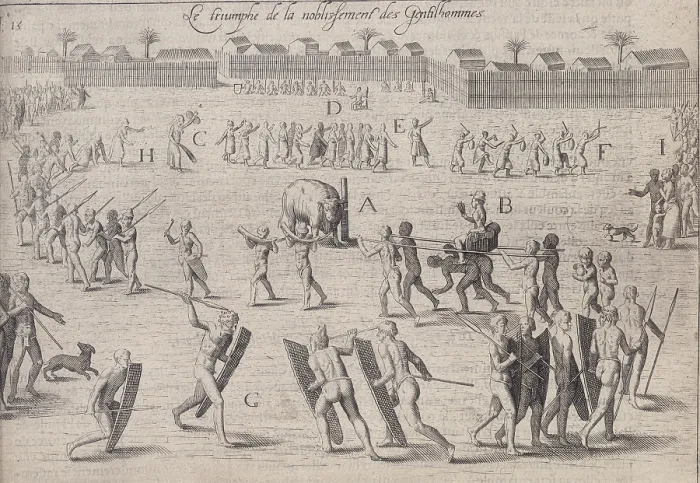 Le triumphe de la noblissement des Gentilhommes
15
D
E
C
H
F
I
A
B
G